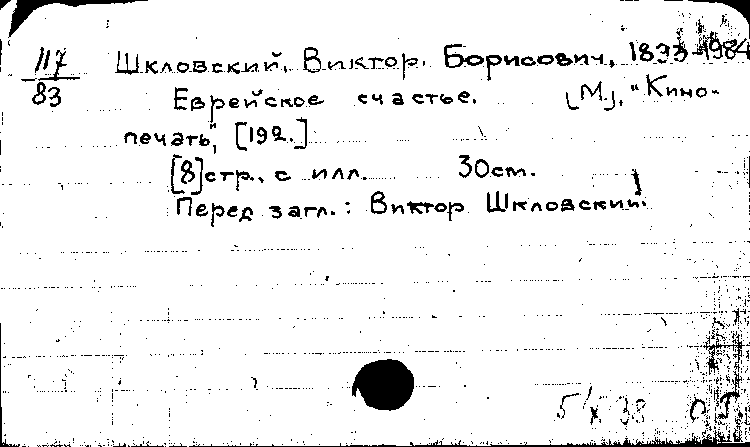 117 Шкловский, Виктор. Борисович, 1893-1984
83 Еврейское счастье. [М.], "Кино-
печать", [192.]
[8]стр., с илл. 30cm.
Перед загл.: Виктор Шкловский!
5/X 38